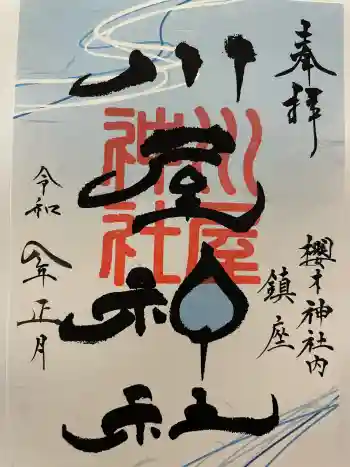 奉拝
櫻木神社内
鎮座
川屋神社
川屋
神社
令和八年正月